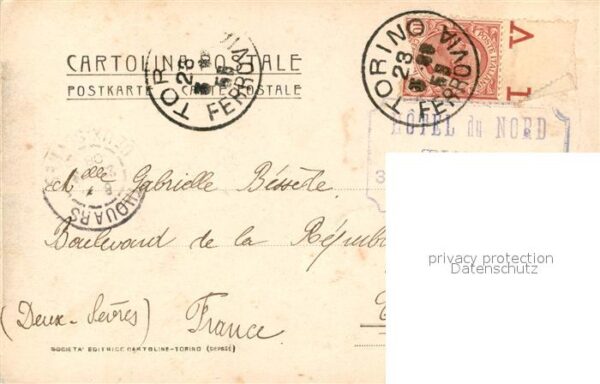 CARTOLINA POSTALE
POSTKARTE CARTE POSTALE
TORINO 23 55 FERROVIA
TORINO 23 55 FERROVIA
POSTE ITALIANE
V
I
HÔTEL du NORD
THOUARS
Gabrielle Béssète.
Boulevard de la Répub
(Deux-Sèvres) France
SOCIETA' EDITRICE CARTOLINE-TORINO (DEPOSÉ)
privacy protection
Datenschutz